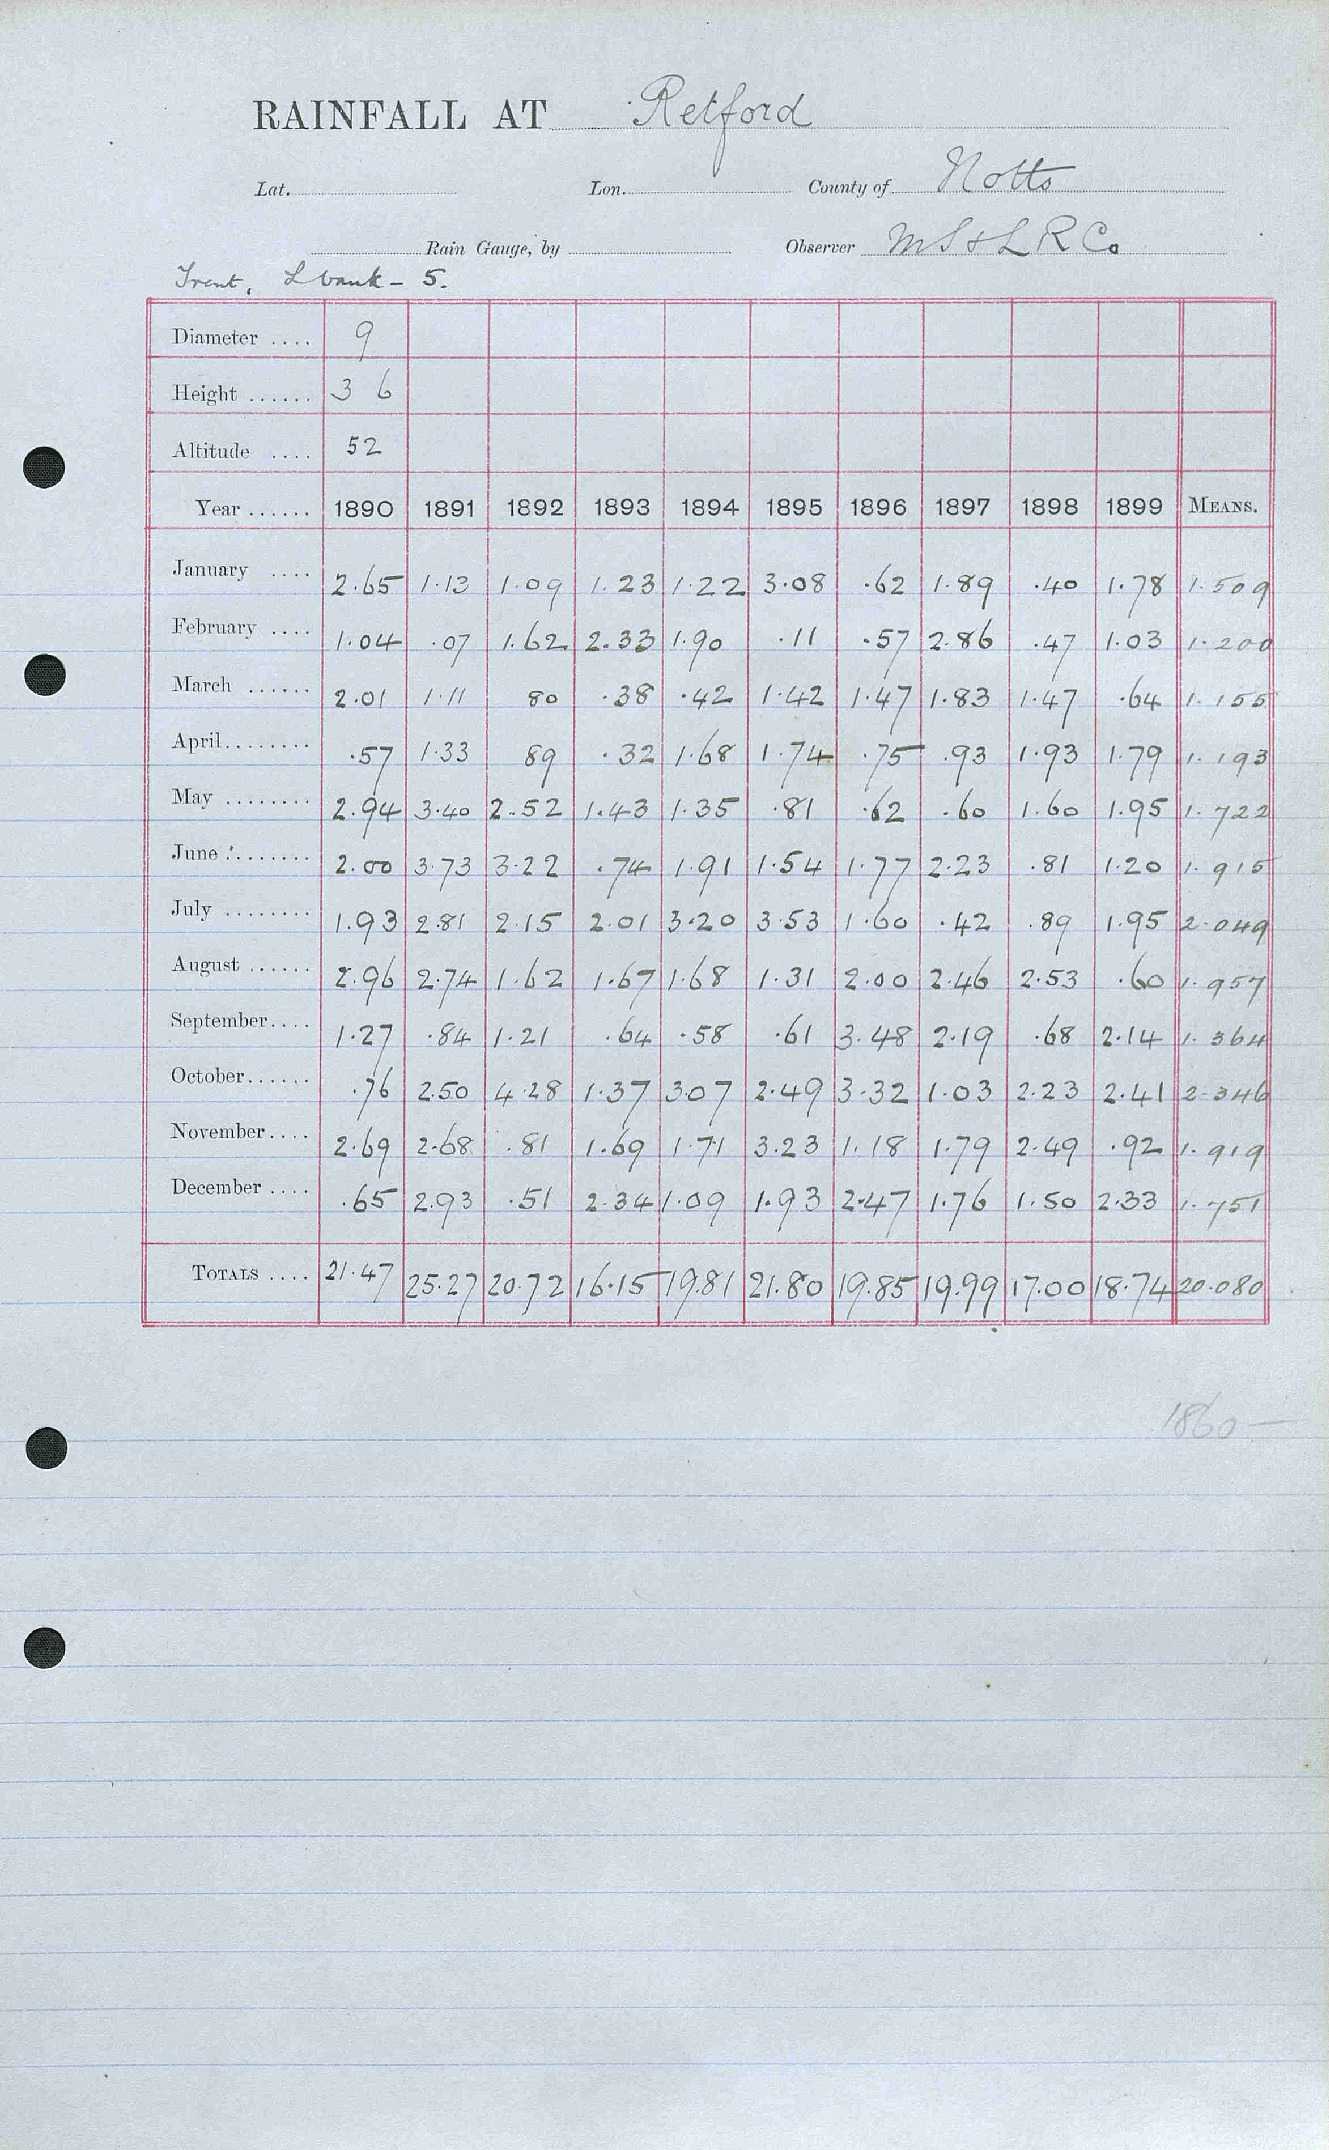 RAINFALL AT Retford
Lat. Lon. County of Notts
Rain Gauge, by Observer M S & L R Co
Trent, L bank - 5.
Diameter .... 9
Height ...... 3 6
Altitude .... 52
Year ...... 1890 1891 1892 1893 1894 1895 1896 1897 1898 1899 MEANS.
January .... 2.65 1.13 1.09 1.23 1.22 3.08 .62 1.89 .40 1.78 1.509
February .... 1.04 .07 1.62 2.33 1.90 .11 .57 2.86 .47 1.03 1.200
March ...... 2.01 1.11 80 .38 .42 1.42 1.47 1.83 1.47 .64 1.155
April........ .57 1.33 89 .32 1.68 1.74 .75 .93 1.93 1.79 1.193
May ........ 2.94 3.40 2.52 1.43 1.35 .81 .62 .60 1.60 1.95 1.722
June ........ 2.00 3.73 3.22 .74 1.91 1.54 1.77 2.23 .81 1.20 1.915
July ........ 1.93 2.81 2.15 2.01 3.20 3.53 1.60 .42 .89 1.95 2.049
August ...... 2.96 2.74 1.62 1.67 1.68 1.31 2.00 2.46 2.53 .60 1.957
September.... 1.27 .84 1.21 .64 .58 .61 3.48 2.19 .68 2.14 1.364
October...... .76 2.50 4.28 1.37 3.07 2.49 3.32 1.03 2.23 2.41 2.346
November.... 2.69 2.68 .81 1.69 1.71 3.23 1.18 1.79 2.49 .92 1.919
December .... .65 2.93 .51 2.34 1.09 1.93 2.47 1.76 1.50 2.33 1.751
TOTALS .... 21.47 25.27 20.72 16.15 19.81 21.80 19.85 19.99 17.00 18.74 20.080
1860 —